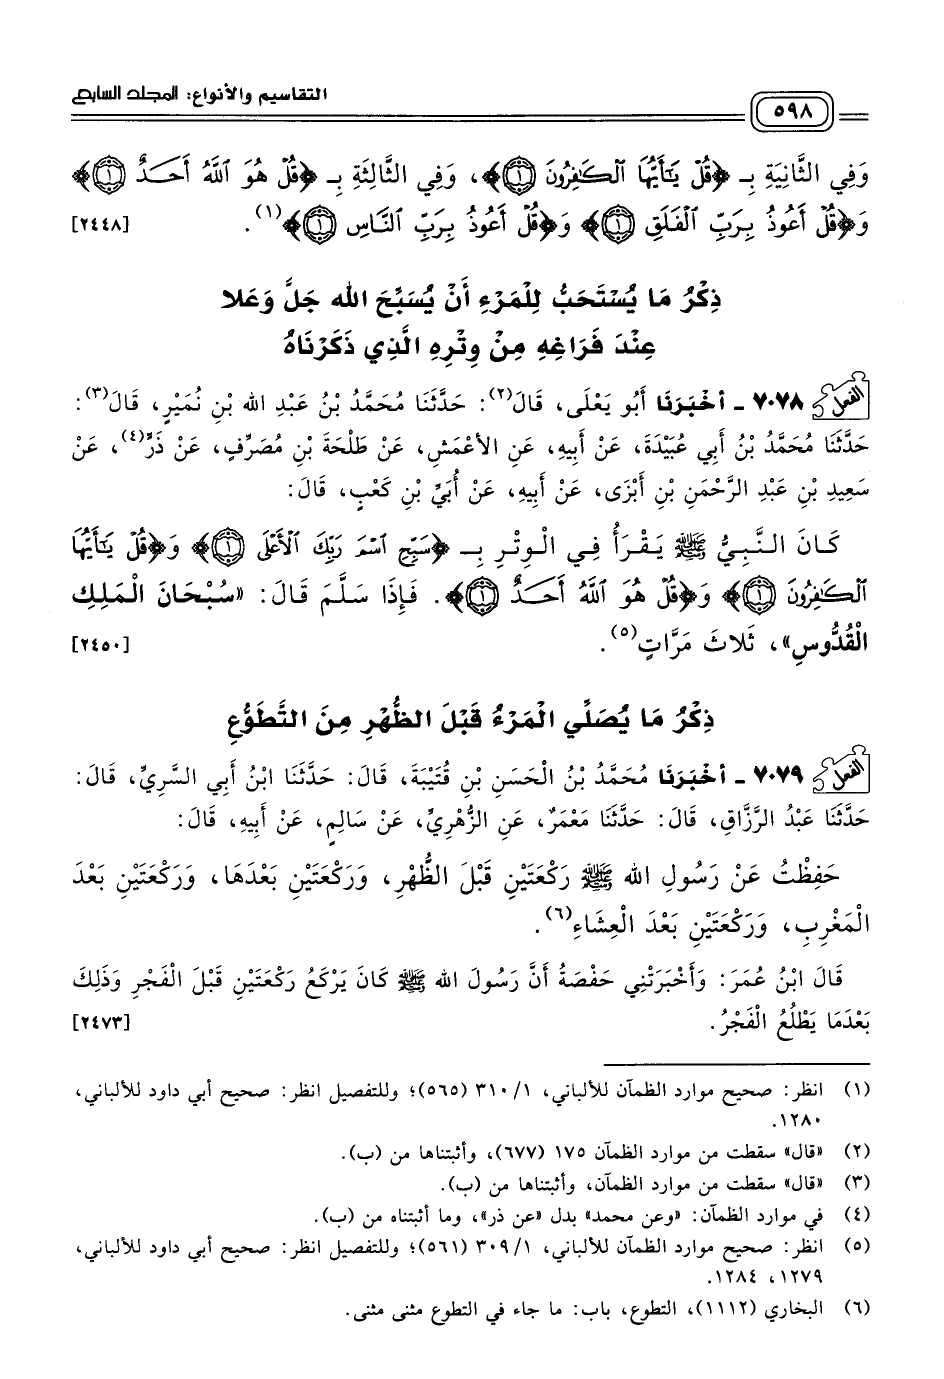 التقاسيم والأنواع: المجلد السابع
٥٩٨
وَفِي الثَّانِيَةِ بِـ ﴿قُلْ يَٰٓأَيُّهَا ٱلْكَٰفِرُونَ ۝١﴾، وَفِي الثَّالِثَةِ بِـ ﴿قُلْ هُوَ ٱللَّهُ أَحَدٌ ۝١﴾
وَ﴿قُلْ أَعُوذُ بِرَبِّ ٱلْفَلَقِ ۝١﴾ وَ﴿قُلْ أَعُوذُ بِرَبِّ ٱلنَّاسِ ۝١﴾(١). [٢٤٤٨]
ذِكْرُ مَا يُسْتَحَبُّ لِلْمَرْءِ أَنْ يُسَبِّحَ الله جَلَّ وَعَلا
عِنْدَ فَرَاغِهِ مِنْ وِتْرِهِ الَّذِي ذَكَرْنَاهُ
الفعل ٧٠٧٨ - أَخْبَرَنَا أَبُو يَعْلَى، قَالَ(٢): حَدَّثَنَا مُحَمَّدُ بْنُ عَبْدِ الله بْنِ نُمَيْرٍ، قَالَ(٣):
حَدَّثَنَا مُحَمَّدُ بْنُ أَبِي عُبَيْدَةَ، عَنْ أَبِيهِ، عَنِ الأَعْمَشِ، عَنْ طَلْحَةَ بْنِ مُصَرِّفٍ، عَنْ ذَرٍّ(٤)، عَنْ
سَعِيدِ بْنِ عَبْدِ الرَّحْمَنِ بْنِ أَبْزَى، عَنْ أَبِيهِ، عَنْ أُبَيِّ بْنِ كَعْبٍ، قَالَ:
كَانَ النَّبِيُّ ﷺ يَقْرَأُ فِي الْوِتْرِ بِـ ﴿سَبِّحِ ٱسْمَ رَبِّكَ ٱلْأَعْلَى ۝١﴾ وَ﴿قُلْ يَٰٓأَيُّهَا
ٱلْكَٰفِرُونَ ۝١﴾ وَ﴿قُلْ هُوَ ٱللَّهُ أَحَدٌ ۝١﴾. فَإِذَا سَلَّمَ قَالَ: «سُبْحَانَ الْمَلِكِ
الْقُدُّوسِ»، ثَلاثَ مَرَّاتٍ(٥). [٢٤٥٠]
ذِكْرُ مَا يُصَلِّي الْمَرْءُ قَبْلَ الظُّهْرِ مِنَ التَّطَوُّعِ
الفعل ٧٠٧٩ - أَخْبَرَنَا مُحَمَّدُ بْنُ الْحَسَنِ بْنِ قُتَيْبَةَ، قَالَ: حَدَّثَنَا ابْنُ أَبِي السَّرِيِّ، قَالَ:
حَدَّثَنَا عَبْدُ الرَّزَّاقِ، قَالَ: حَدَّثَنَا مَعْمَرٌ، عَنِ الزُّهْرِيِّ، عَنْ سَالِمٍ، عَنْ أَبِيهِ، قَالَ:
حَفِظْتُ عَنْ رَسُولِ الله ﷺ رَكْعَتَيْنِ قَبْلَ الظُّهْرِ، وَرَكْعَتَيْنِ بَعْدَهَا، وَرَكْعَتَيْنِ بَعْدَ
الْمَغْرِبِ، وَرَكْعَتَيْنِ بَعْدَ الْعِشَاءِ(٦).
قَالَ ابْنُ عُمَرَ: وَأَخْبَرَتْنِي حَفْصَةُ أَنَّ رَسُولَ الله ﷺ كَانَ يَرْكَعُ رَكْعَتَيْنِ قَبْلَ الْفَجْرِ وَذَلِكَ
بَعْدَمَا يَطْلُعُ الْفَجْرُ. [٢٤٧٣]
(١) انظر: صحيح موارد الظمآن للألباني، ٣١٠/١ (٥٦٥)؛ وللتفصيل انظر: صحيح أبي داود للألباني،
١٢٨٠.
(٢) «قال» سقطت من موارد الظمآن ١٧٥ (٦٧٧)، وأثبتناها من (ب).
(٣) «قال» سقطت من موارد الظمآن، وأثبتناها من (ب).
(٤) في موارد الظمآن: «وعن محمد» بدل «عن ذر»، وما أثبتناه من (ب).
(٥) انظر: صحيح موارد الظمآن للألباني، ٣٠٩/١ (٥٦١)؛ وللتفصيل انظر: صحيح أبي داود للألباني،
١٢٧٩، ١٢٨٤.
(٦) البخاري (١١١٢)، التطوع، باب: ما جاء في التطوع مثنى مثنى.